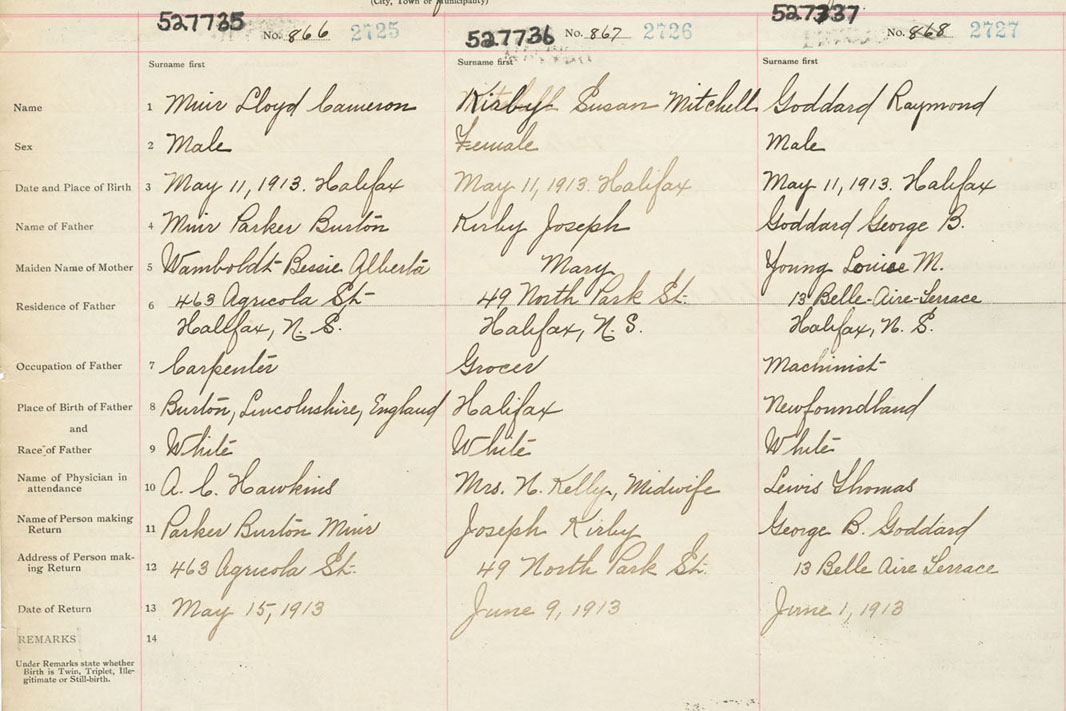 (City, Town or Municipality)
527735 No. 866 2725
527736 No. 867 2726
527737 No. 868 2727
Surname first Surname first Surname first
Name 1 Muir Lloyd Cameron Kirby Susan Mitchell Goddard Raymond
Sex 2 Male Female Male
Date and Place of Birth 3 May 11, 1913. Halifax May 11, 1913. Halifax May 11, 1913. Halifax
Name of Father 4 Muir Parker Burton Kirby Joseph Goddard George B.
Maiden Name of Mother 5 Wamboldt Bessie Alberta Mary Young Louise M.
Residence of Father 6 463 Agricola St. 49 North Park St. 13 Belle-Aire-Terrace
Halifax, N. S. Halifax, N. S. Halifax, N. S.
Occupation of Father 7 Carpenter Grocer Machinist
Place of Birth of Father 8 Burton, Lincolnshire, England Halifax Newfoundland
and
Race of Father 9 White White White
Name of Physician in
attendance 10 A. C. Hawkins Mrs. N. Kelly, Midwife Lewis Thomas
Name of Person making
Return 11 Parker Burton Muir Joseph Kirby George B. Goddard
Address of Person mak-
ing Return 12 463 Agricola St. 49 North Park St. 13 Belle Aire Terrace
Date of Return 13 May 15, 1913 June 9, 1913 June 1, 1913
REMARKS 14
Under Remarks state whether
Birth is Twin, Triplet, Ille-
gitimate or Still-birth.